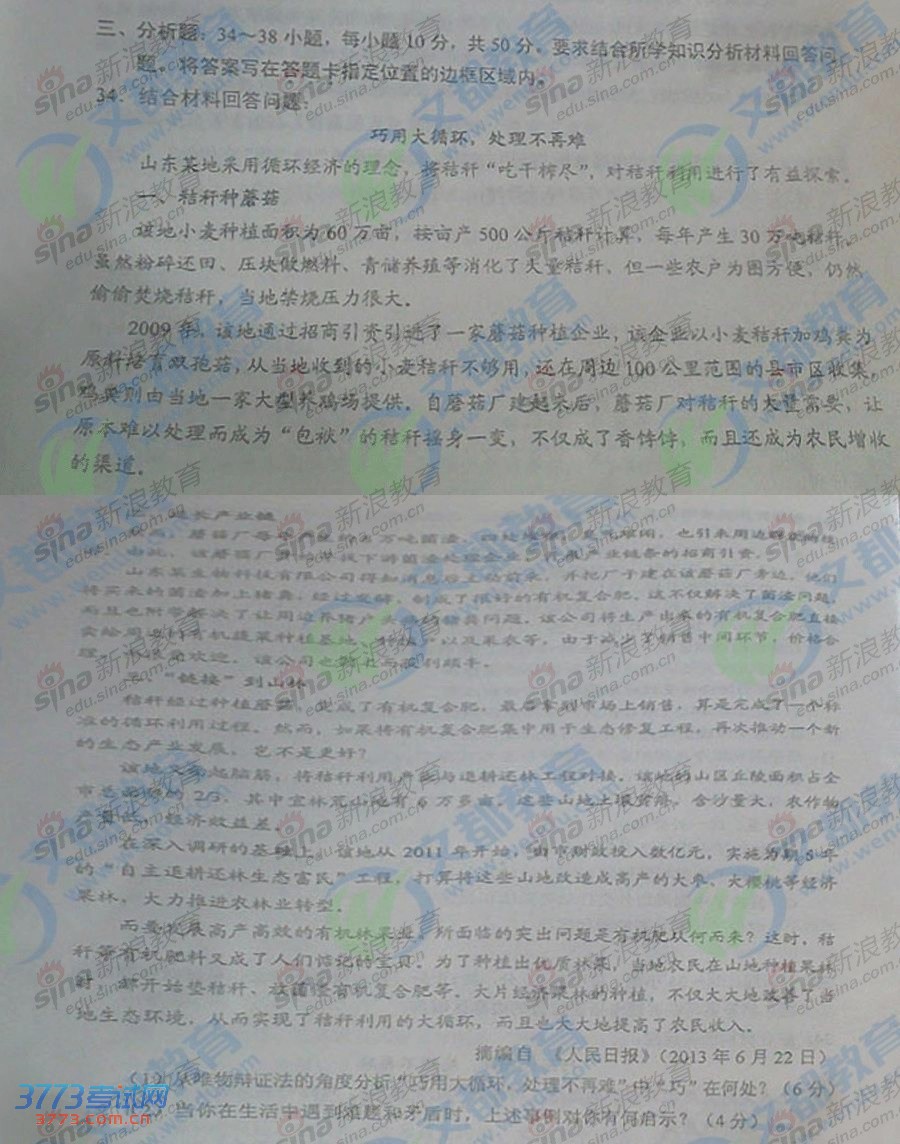 三、分析题：34～38小题，每小题10分，共50分。要求结合所学知识分析材料回答问
题。将答案写在答题卡指定位置的边框区域内。
34．结合材料回答问题：
巧用大循环，处理不再难
山东某地采用循环经济的理念，将秸秆“吃干榨尽”，对秸秆利用进行了有益探索。
一、秸秆种蘑菇
该地小麦种植面积为60万亩，按亩产500公斤秸秆计算，每年产生30万吨秸秆。
虽然粉碎还田、压块做燃料、青储养殖等消化了大量秸秆，但一些农户为图方便，仍然
偷偷焚烧秸秆，当地禁烧压力很大。
2009年，该地通过招商引资引进了一家蘑菇种植企业，该企业以小麦秸秆加鸡粪为
原料培育双孢菇，从当地收到的小麦秸秆不够用，还在周边100公里范围的县市区收集，
鸡粪则由当地一家大型养鸡场提供。自蘑菇厂建起来后，蘑菇厂对秸秆的大量需要，让
原本难以处理而成为“包袱”的秸秆摇身一变，不仅成了香饽饽，而且还成为农民增收
的渠道。
延长产业链
蘑菇厂每年 万吨菌渣， 也引来周边群众的
该蘑菇厂 下游菌渣处理企业， 产业链条的招商引资。
山东某生物科技有限公司得知消息后主动前来，并把厂子建在该蘑菇厂旁边，他们
将买来的菌渣加上猪粪，经过发酵，制成了很好的有机复合肥。这不仅解决了菌渣问题，
而且也附带解决了让周边养猪户头疼的猪粪问题。该公司将生产出来的有机复合肥直接
卖给周边的有机蔬菜种植基地、种粮 以及果农等，由于减少了销售中间环节，价格合
理， 欢迎，该公司也 获利颇丰。
“链接”到山林
秸秆经过种植蘑菇，变成了有机复合肥，最后拿到市场上销售，算是完成了一个标
准的循环利用过程。然而，如果将有机复合肥集中用于生态修复工程，再次推动一个新
的生态产业发展，岂不是更好？
该地又 起脑筋，将秸秆利用 与退耕还林工程对接。该地的山区丘陵面积占全
市总面积的2/3，其中宜林荒山地有6万多亩。这些山地土壤贫瘠，含沙量大，农作物
产量低，经济效益差。
在深入调研的基础上，该地从2011年开始，由市财政投入数亿元，实施为期5年
的“自主退耕还林生态富民”工程，打算将这些山地改造成高产的大枣、大樱桃等经济
果林，大力推进农林业转型。
而要发展高产高效的有机林果业，所面临的突出问题是有机肥从何而来？这时，秸
秆等有机肥料又成了人们惦记的宝贝。为了种植出优质林果，当地农民在山地种植果林
时，都开始垫秸秆、放菌渣有机复合肥等。大片经济果林的种植，不仅大大地改善了当
地生态环境，从而实现了秸秆利用的大循环，而且也大大地提高了农民收入。
摘编自 《人民日报》（2013年6月22日）
（1）从唯物辩证法的角度分析“巧用大循环，处理不再难”中“巧”在何处？（6分）
当你在生活中遇到难题和矛盾时，上述事例对你有何启示？（4分）
文都教育
sina新浪教育
edu.sina.com.cn
3773考试网
3773.com.cn